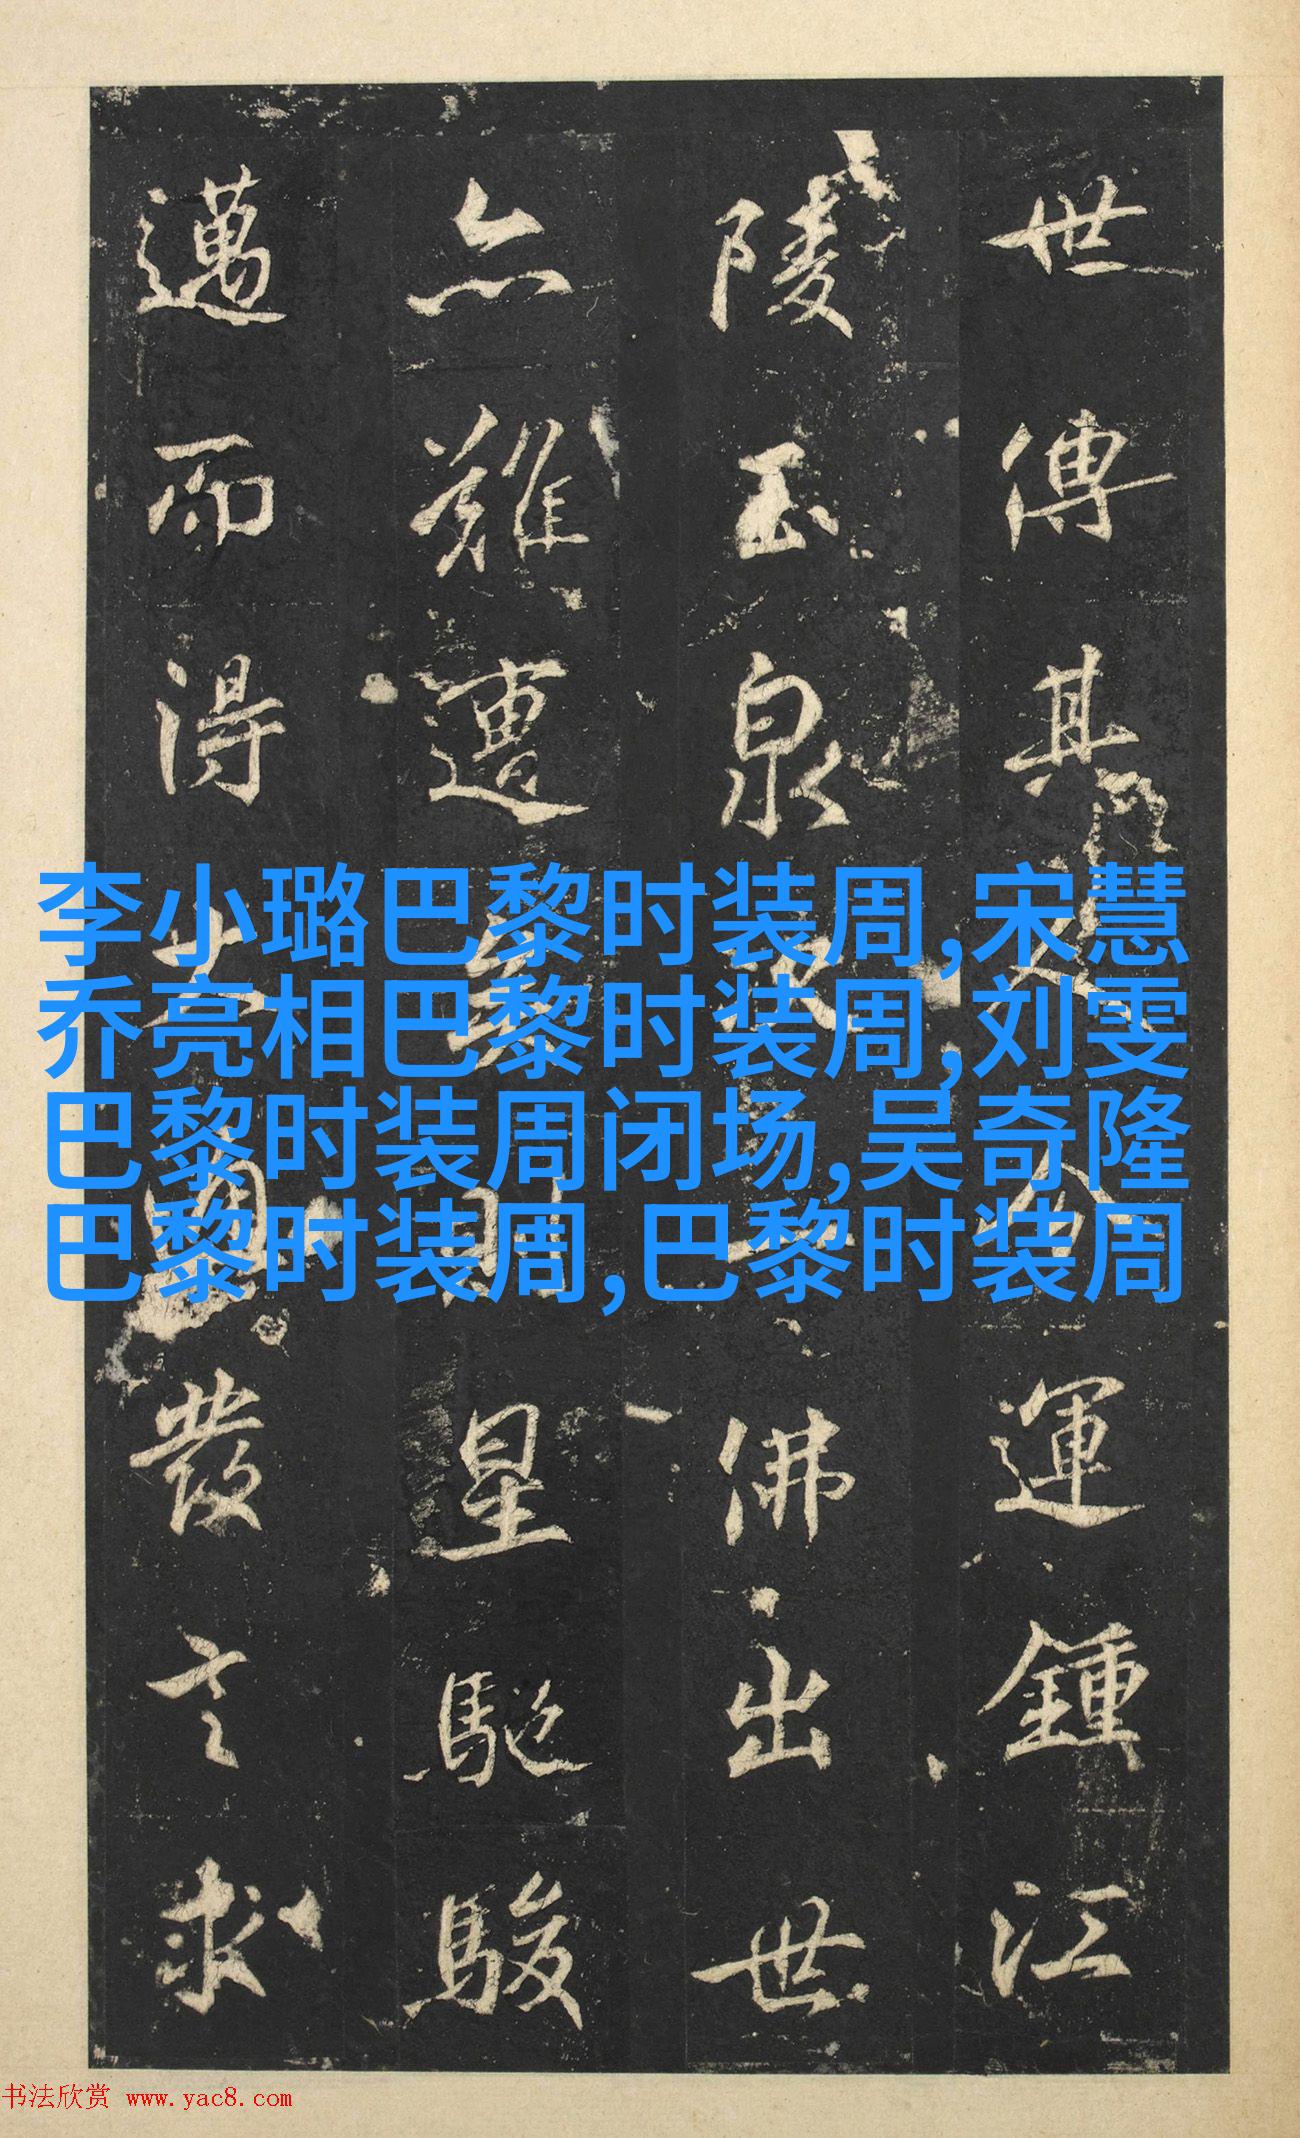 世傳其運鍾江
陵玉泉佛出世
亦難遭星馳駿
邁而得發言求
李小璐巴黎时装周,宋慧
乔亮相巴黎时装周,刘雯
巴黎时装周闭场,吴奇隆
巴黎时装周,巴黎时装周
书法欣赏 www.yac8.com